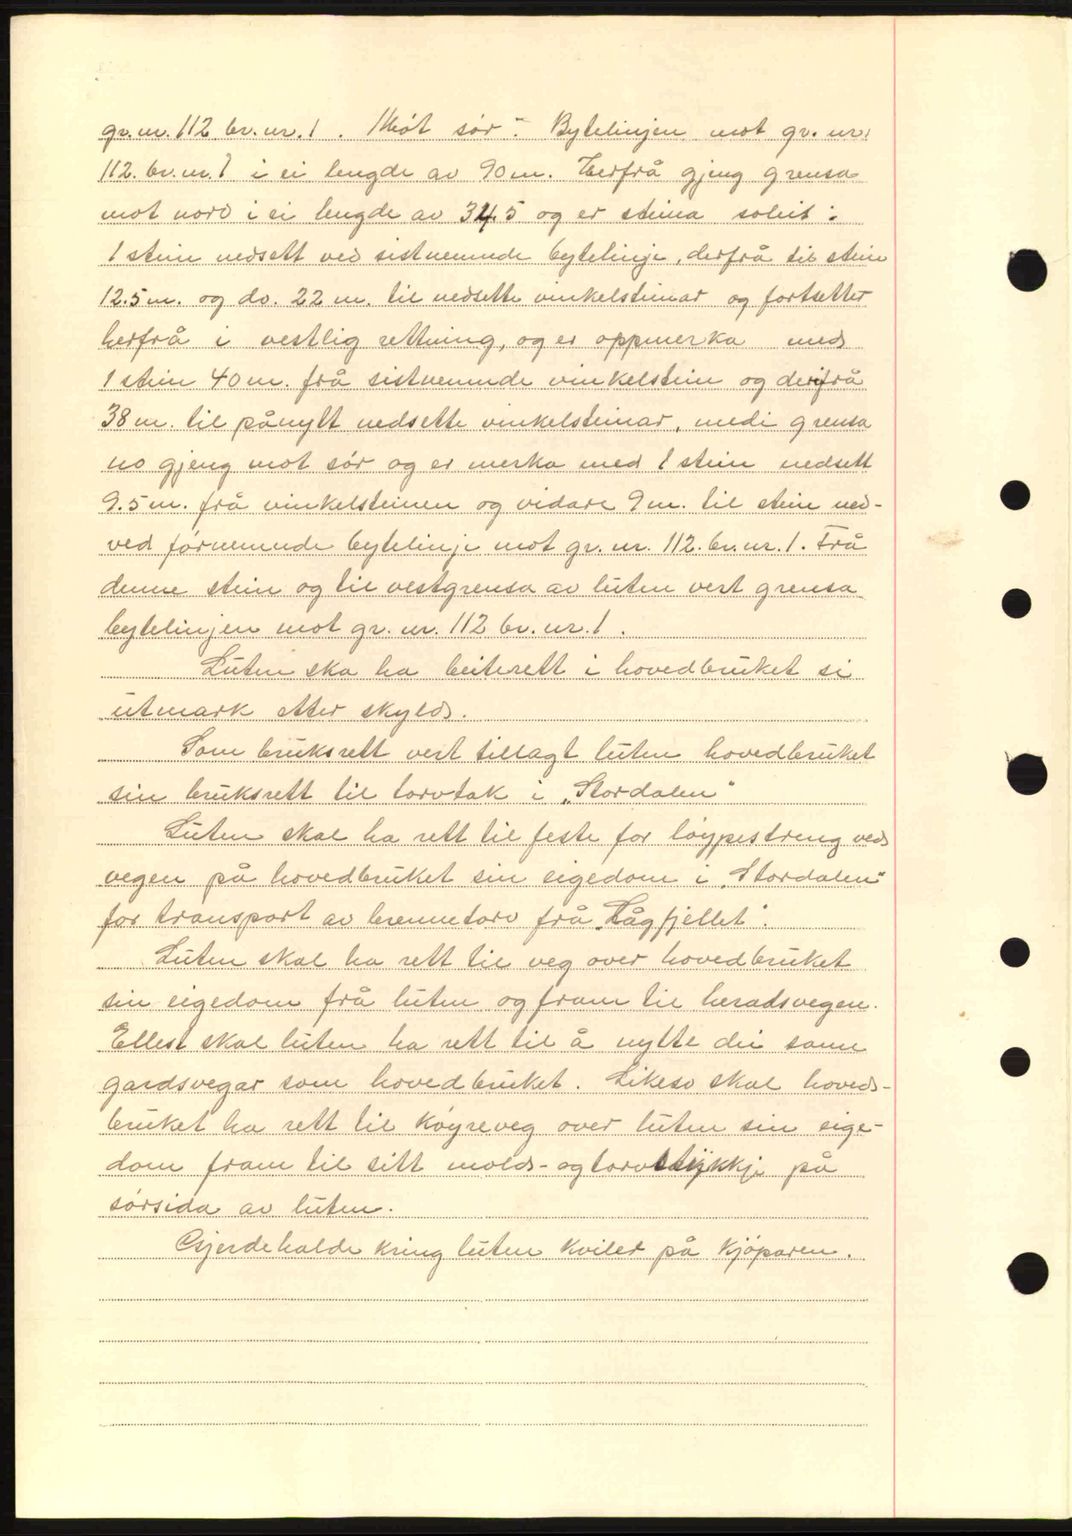 gr. nr. 112 br. nr. 1. Mót sór: Bytelinjen mot gr. nr.
112. br. nr. 1 i ei lengde av 90 m. Herfrå gjeng grensa
mot nord i ei lengde av 34.5 og er steina soleis:
1 stein nedsett ved sistnemnde bytelinje, derfrå til stein
12.5 m. og do. 22 m. til nedsette vinkelsteinar og fortsetter
herfrå i vestlig rettning, og er oppmerka med
1 stein 40 m. frå sistnemnde vinkelstein og derifrå
38 m. til pånytt nedsette vinkelsteinar, medi grensa
no gjeng mot sór og er merka med 1 stein nedsett
9.5 m. frå vinkelsteinen og vidare 9 m. til stein ned-
ved fórnemnde bytelinje mot gr. nr. 112. br. nr. 1. Frå
denne stein og til vestgrensa av luten vert grensa
bytelinjen mot gr. nr. 112 br. nr. 1.
Luten ska ha beiterett i hovedbruket si
utmark etter skyld.
Som bruksrett vert tillagt luten hovedbruket
sin bruksrett til torvtak i „Stordalen"
Luten skal ha rett til feste for lóypestreng ved
vegen på hovedbruket sin eigedom i „Stordalen"
for transport av brennetorv frå „Lågfjellet".
Luten skal ha rett til veg over hovedbruket
sin eigedom frå luten og fram til heradsvegen.
Ellest skal luten ha rett til å nytte dei same
gardsvegar som hovedbruket. Likeso skal hoved-
bruket ha rett til kóyreveg over luten sin eige-
dom fram til sitt mold- og torvstykkje på
sórsida av luten.
Gjerdehalde kring luten kviler på kjóparen.